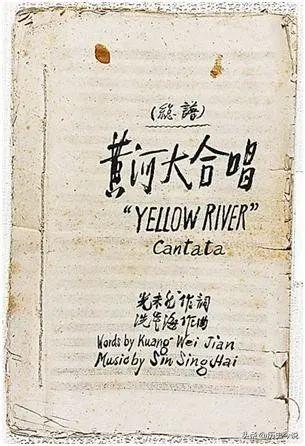 (總譜)
黃河大合唱
"YELLOW RIVER"
Cantata
光未然作詞
洗星海作曲
Words by Kuang Wei Jian
Music by Sin Sing Hai